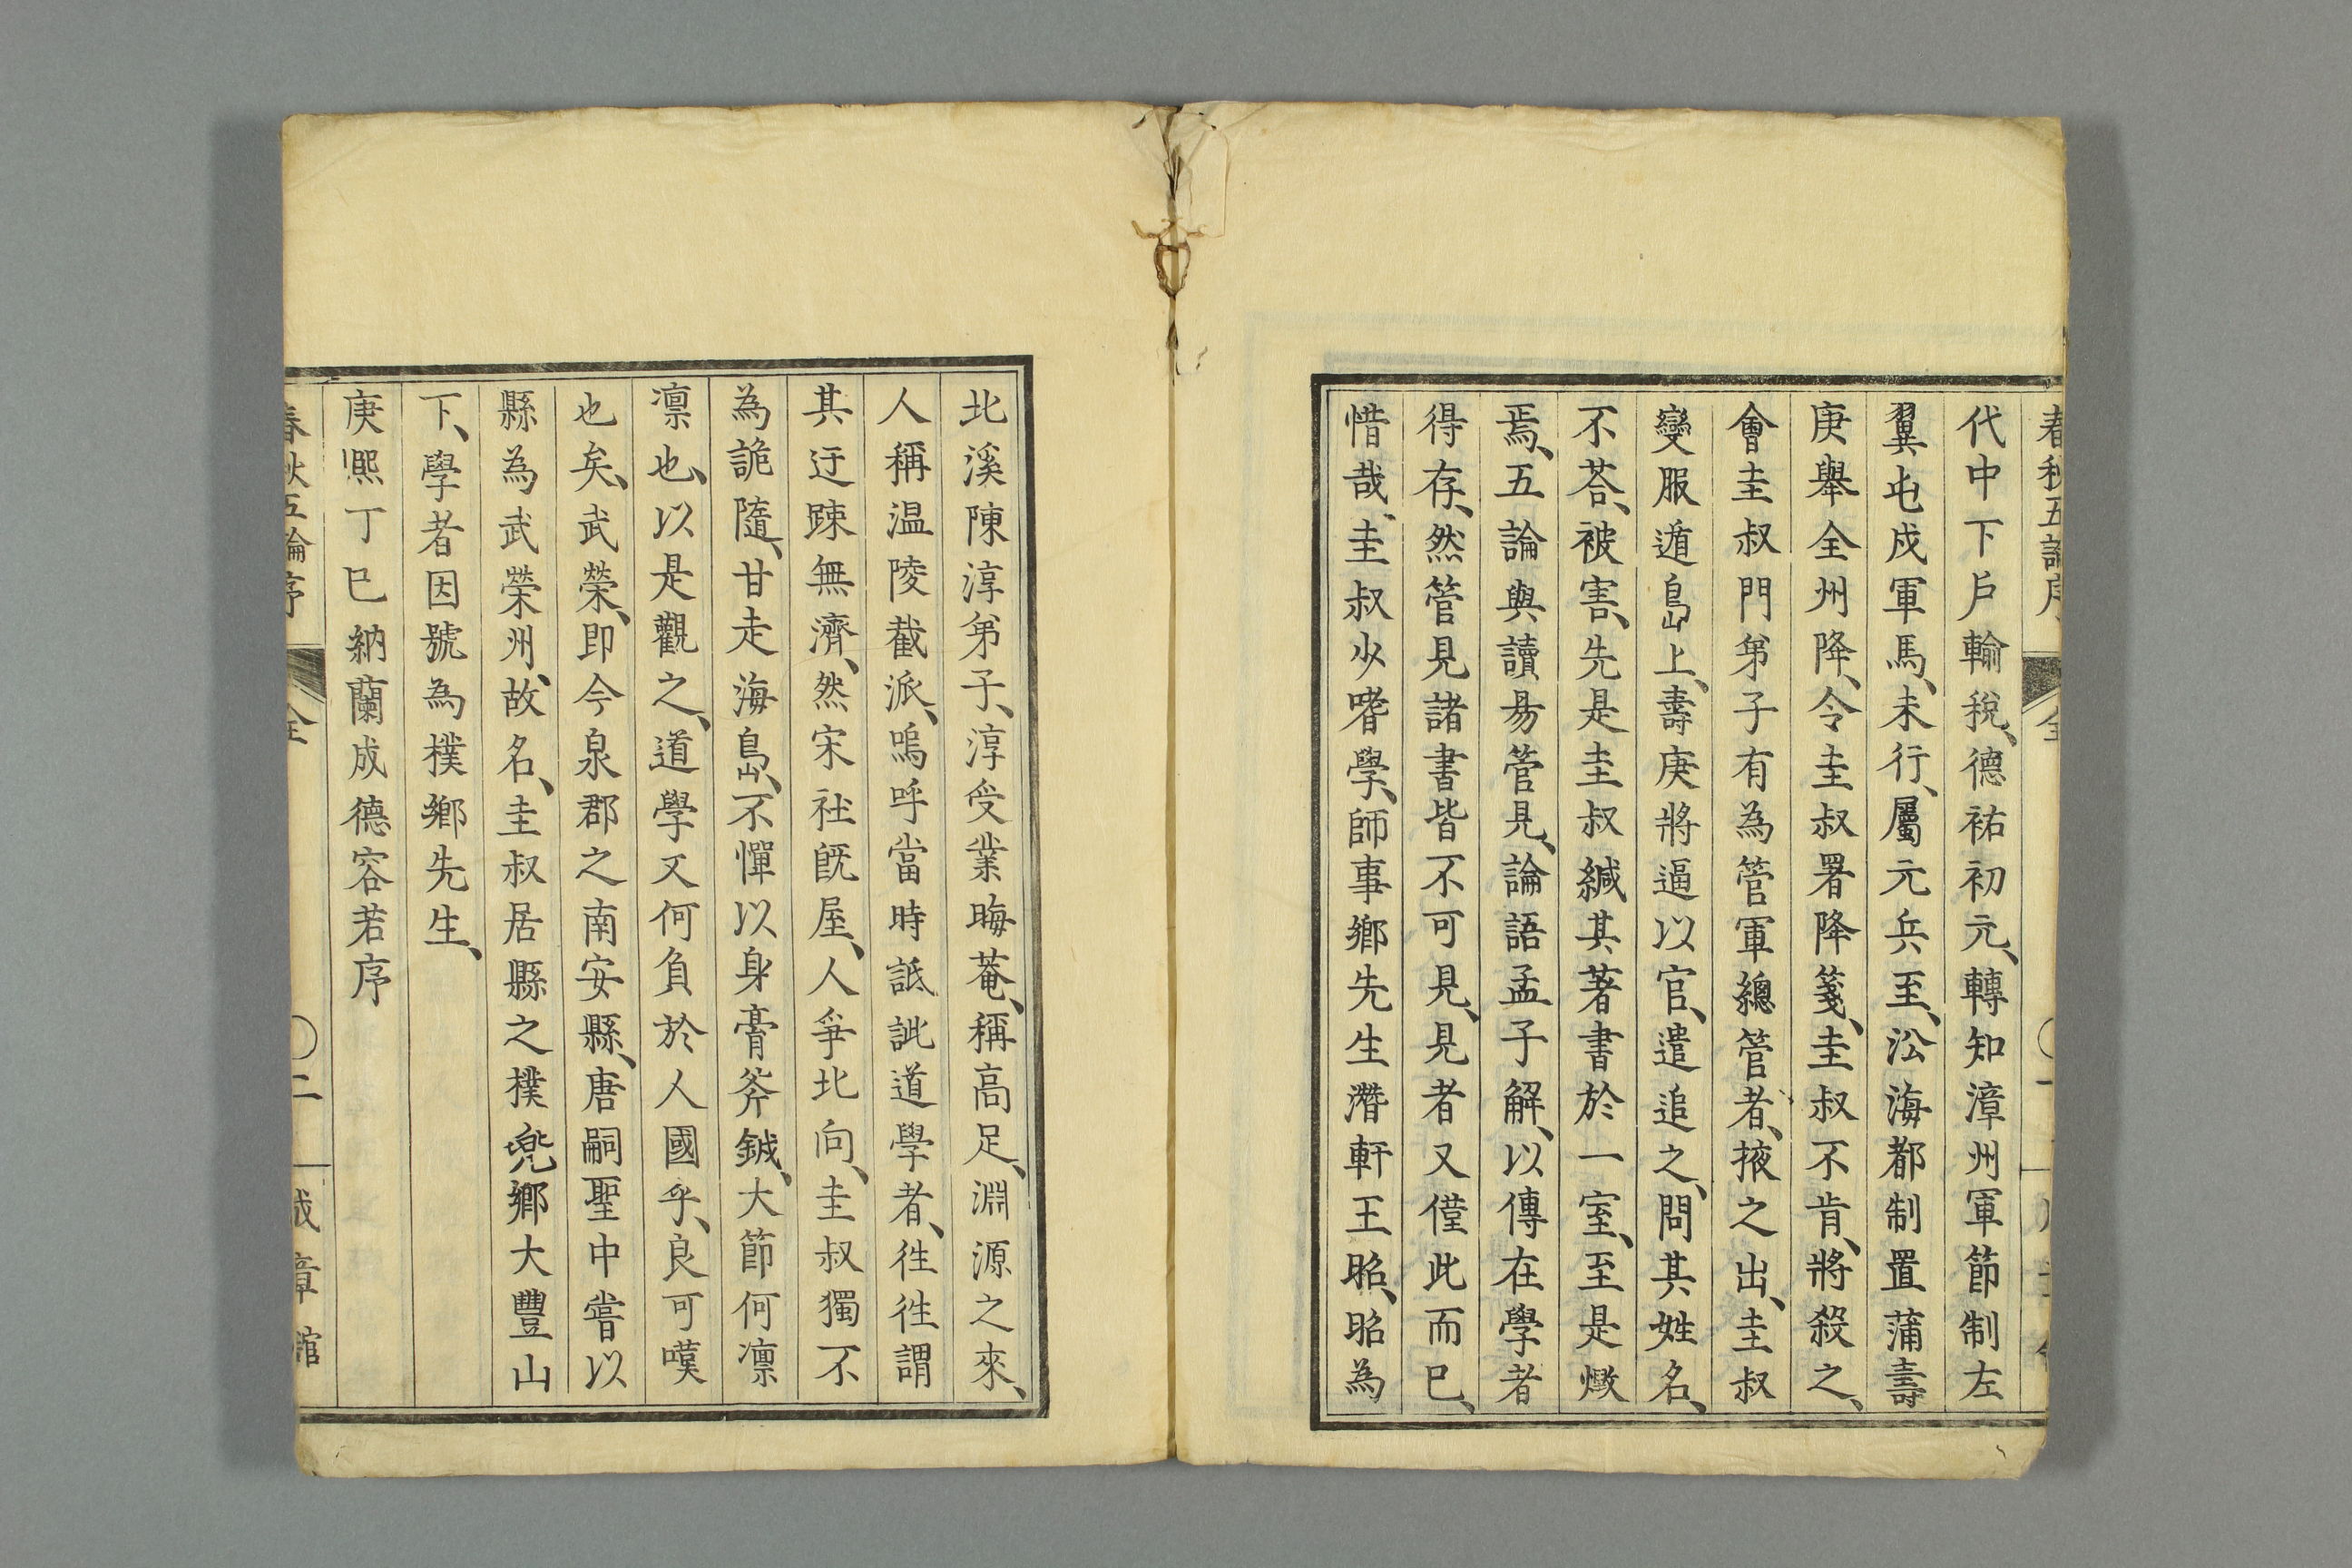 春秋五論序
全
代中下戶輸稅、德祐初元、轉知漳州軍節制左
翼屯戍軍馬、未行、屬元兵至、㳂海都制置蒲壽
庚舉全州降、令圭叔署降箋、圭叔不肯、將殺之、
會圭叔門弟子有為管軍總管者、掖之出、圭叔
變服遁島上、壽庚將逼以官、遣追之、問其姓名、
不荅、被害、先是圭叔緘其著書於一室、至是燬
焉、五論與讀昜管見、論語孟子解、以傳在學者
得存、然管見諸書皆不可見、見者又僅此而已、
惜哉、圭叔少嗜學、師事鄉先生濳軒王昭、昭為
北溪陳淳弟子、淳受業晦菴、稱高足、淵源之來、
人稱温陵截派、嗚呼當時詆訿道學者、徃徃謂
其迂踈無濟、然宋社旣屋、人爭北向、圭叔獨不
為詭隨、甘走海島、不憚以身膏斧鉞、大節何凛
凛也、以是觀之、道學又何負於人國乎、良可嘆
也矣、武榮、即今泉郡之南安縣、唐嗣聖中嘗以
縣為武榮州、故名、圭叔居縣之樸兜鄉大豐山
下、學者因號為樸鄉先生、
庚熙丁巳納蘭成德容若序
春秋五論序
全
二
成章館